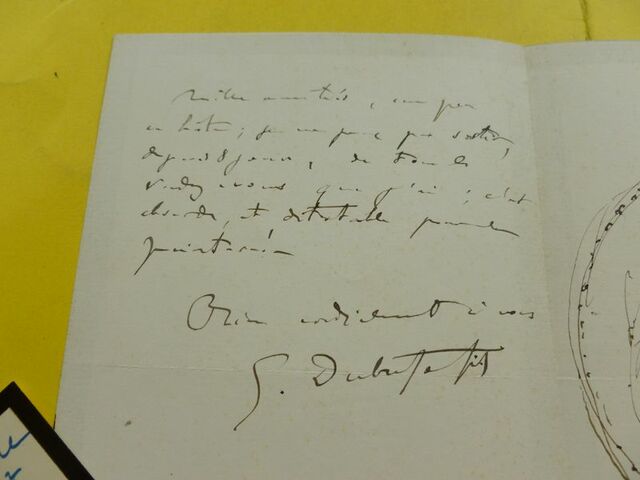 Mille amitiés, un peu
en hâte; je ne puis pas sortir,
depuis 8 jours, de tous les
rendez vous que j'ai; c'est
absurde, et détestable pour la
peinture
Bien cordialement à vous
G. Dubufe fils